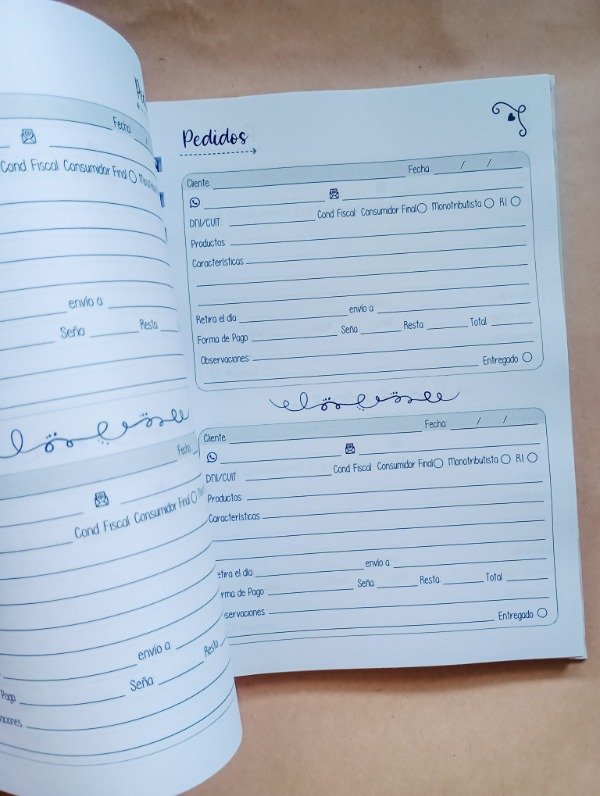 Fecha
Cond Fiscal Consumidor Final
envío a
Seña Resta
Fecha
Cond Fiscal Consumidor Final
envío a
Seña Resta
Pago
Pedidos
Cliente Fecha / /
DNI/CUIT: Cond Fiscal Consumidor Final Monotributista R.I.
Productos
Características
Retira el día envío a
Forma de Pago Seña Resta Total
Observaciones:
Entregado
Cliente Fecha / /
DNI/CUIT: Cond Fiscal Consumidor Final Monotributista R.I.
Productos
Características
etira el día envío a
rma de Pago Seña Resta Total
servaciones
Entregado